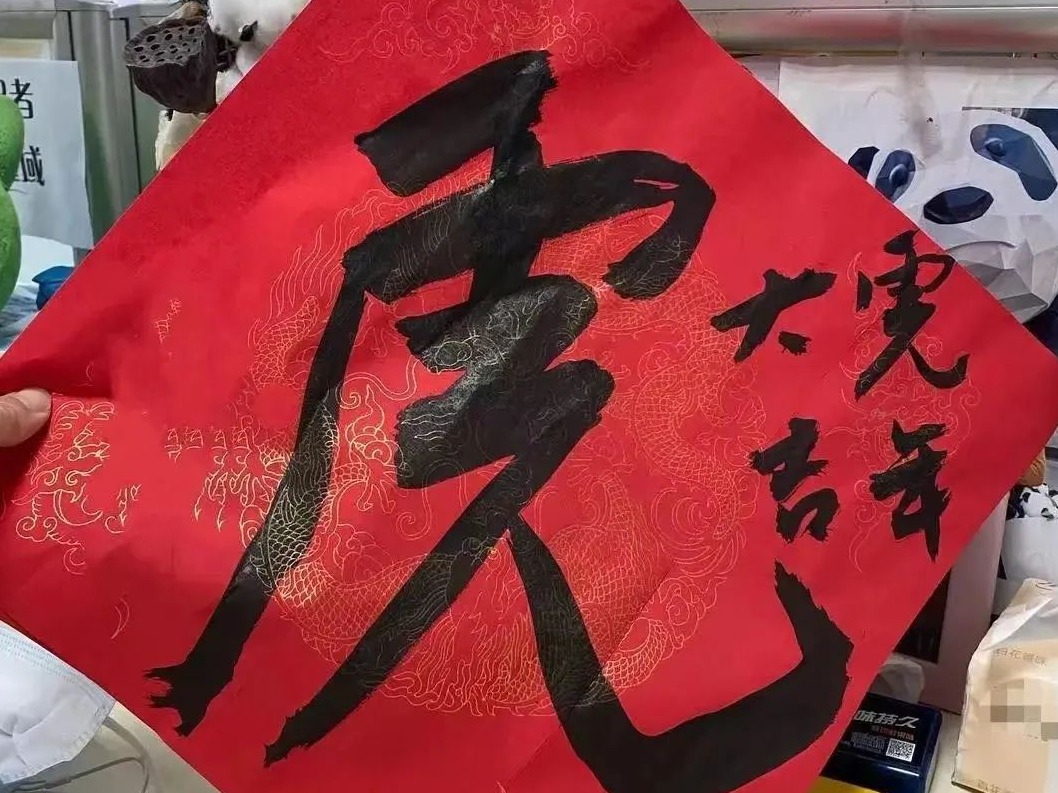 虎
虎年
大吉
味持久